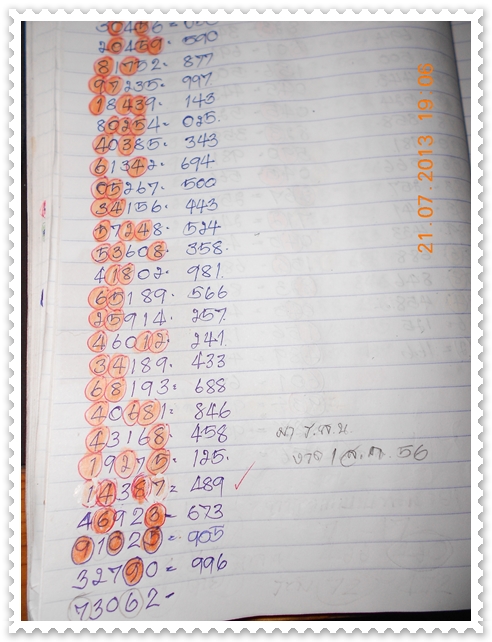 20459. 590
81752. 877
97235. 997
18439. 143
89254. 025.
40385. 343
61342. 694
05267. 500
34156. 443
57248. 524
53608. 358.
41802. 981.
65189. 566
25914. 257.
46012. 241.
34189. 433
68193: 688
40681: 846
43168. 458
19275. 125.
14387= 489 ✓
งวด 1 ส.ค. 56
46923= 673
91025= 905
32790= 996
73062-
21.07.2013 19:06